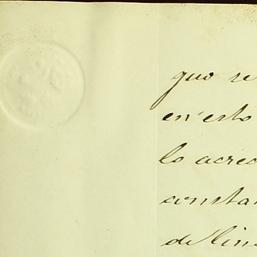 que se
en esto
lo acred
constan
de lin